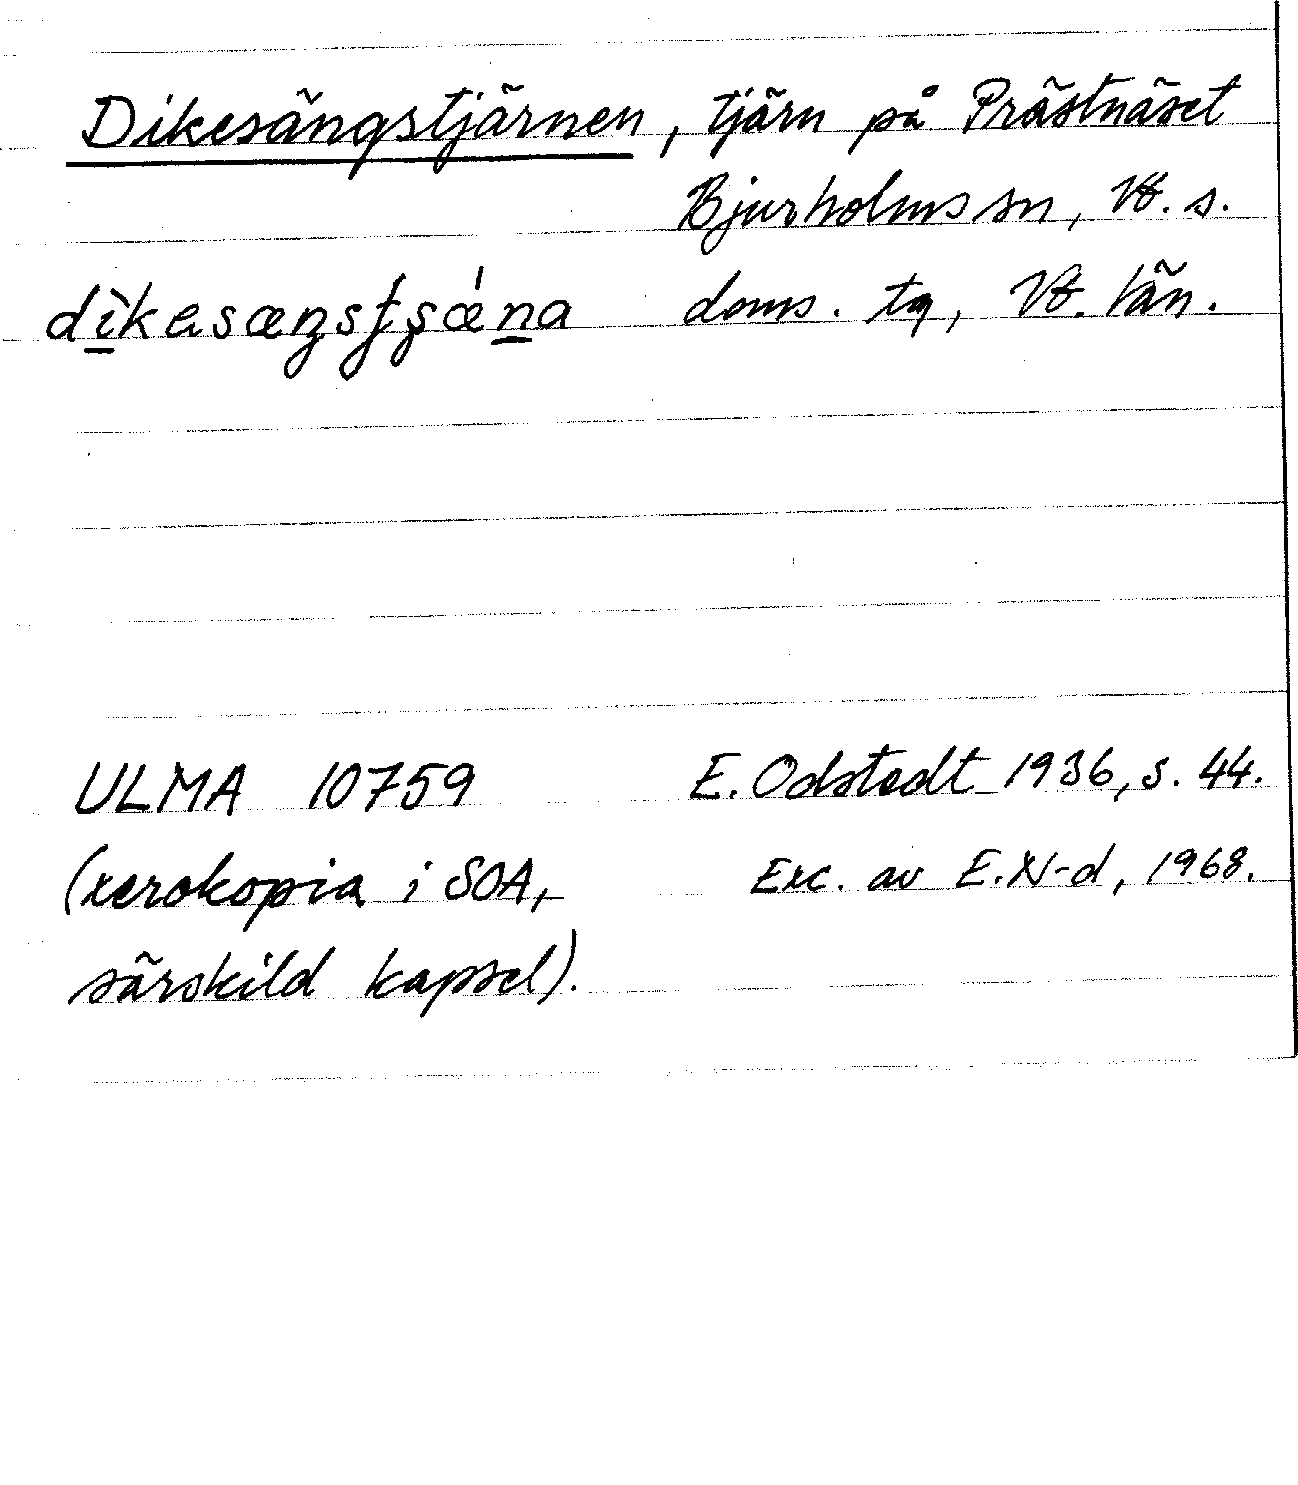 Dikesängstjärnen, tjärn på Prästnäset
Bjurholms sn, Vb. s.
doms. tg, Vb. län.
ULMA 10759
E. Odstedt 1936, s. 44.
(xerokopia i SOA,
Exc. av E. N-d, 1968.
särskild kapsel).